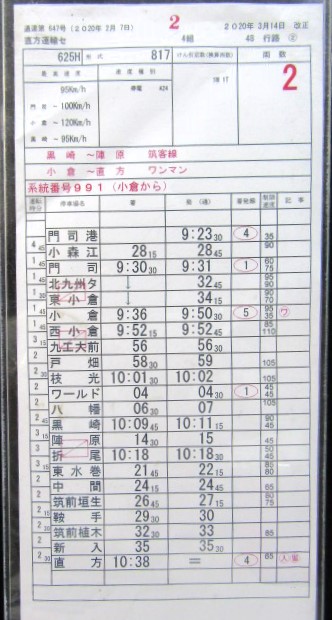 2
運運第 647号 (2020年 2月 7日) 2020年 3月14日 改正
直方運輸セ 4組 40 行路 ②
625H 形式 817 けん引定数(換算両数) 両数
最高速度 速度種別 2
95Km/h 停電 A24 1B 1T
門司 ～100Km/h
小倉 ～120Km/h
黒崎 ～95Km/h
黒崎 ～陣原 筑客線
小倉 ～直方 ワンマン
系統番号991(小倉から)
運転時分 停車場名 着 発(通) 着発線 制限速度 記事
門司港 9:23 30 4 35
4 45 小森江 28 15 28 45 90
2 15 門司 9:30 30 9:31 1 60 75
北九州タ ↓ 32 45 95 90
東小倉 ↓ 34 15 90 70
小倉 9:36 9:50 30 5 95 35 ワ
西小倉 9:52 15 9:52 45 85 110
九工大前 56 56 30
戸畑 58 30 59 105
枝光 10:01 30 10:02
ワールド 04 04 30 1 45 45
八幡 06 30 07 105
黒崎 10:09 45 10:11 15 90 45
陣原 14 30 15 45
折尾 10:18 10:18 30 50 45
東水巻 21 45 22 15 85 80
中間 24 15 24 45 65
筑前垣生 26 45 27 15 80 75
鞍手 29 30 30
筑前植木 32 30 33 85
新入 35 35 30
直方 10:38 ＝ 4 65